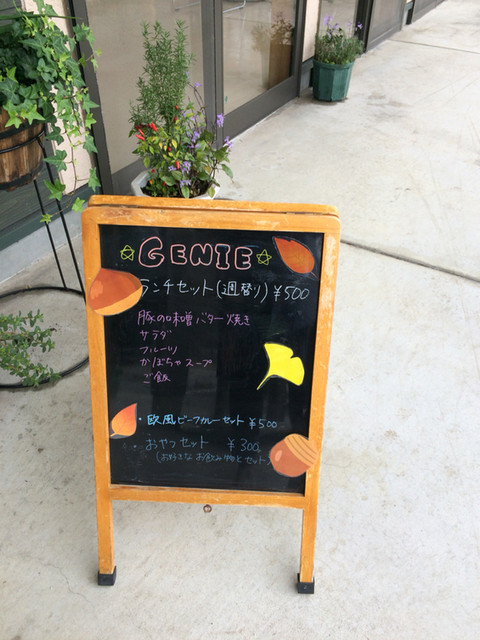 ☆GENIE☆
ランチセット(週替り)¥500
豚の味噌バター焼き
サラダ
フルーツ
かぼちゃスープ
ご飯
・欧風ビーフカレーセット ¥500
・おやつセット ¥300
(お好きなお飲み物とセット)